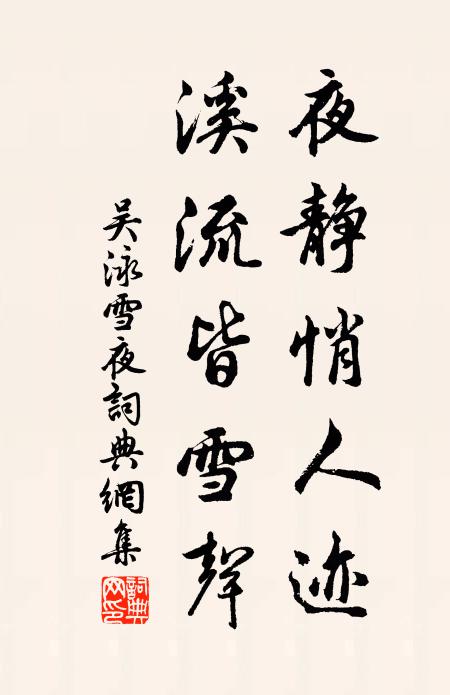 夜静悄人迹
溪流皆雪聲
吴泳雪夜詞典網集
詞典網印